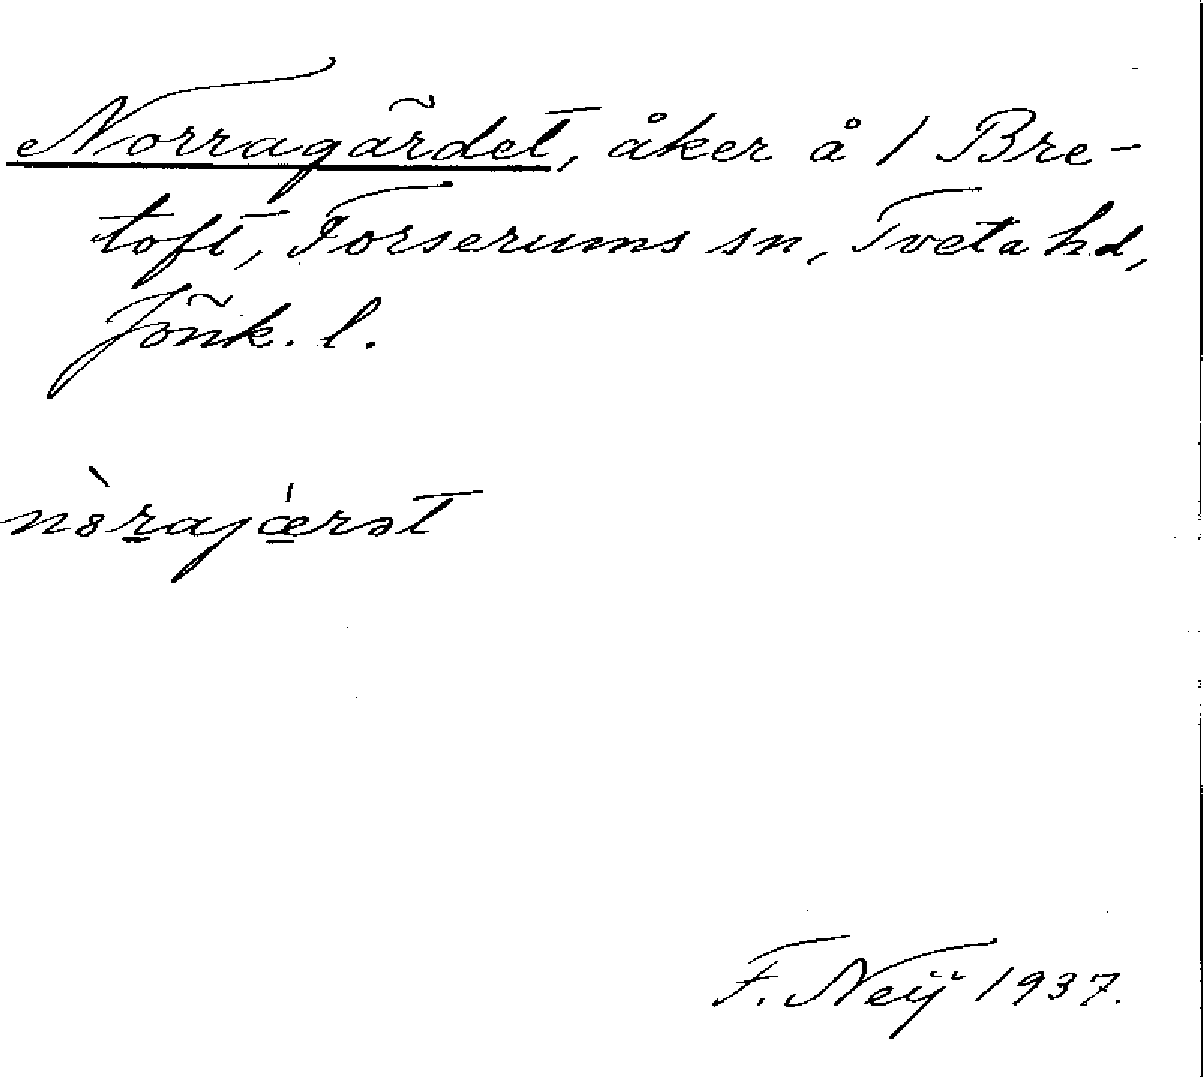 Norragärdet, åker å 1 Bre-
toft, Forserums sn, Tveta hd,
Jönk. l.
nòrajǽrət
F. Neij 1937.